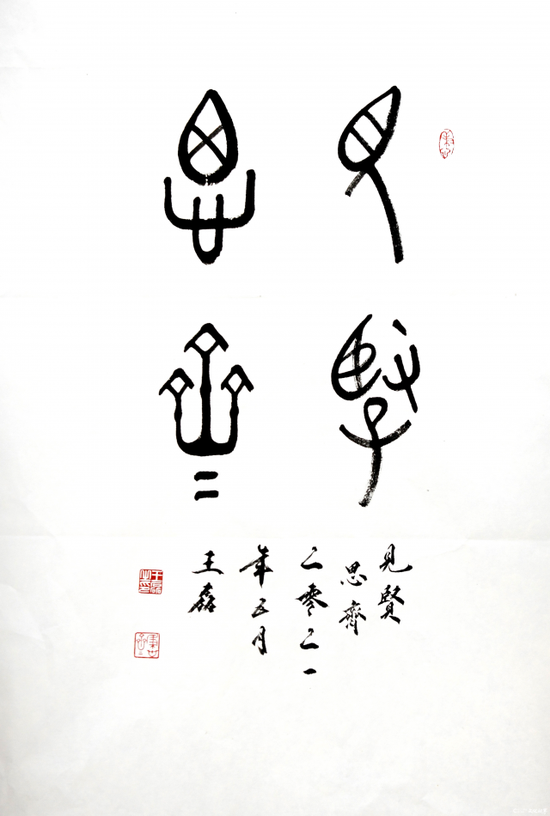 見賢
思齊
見賢
思齊
二零二一
年五月
王磊